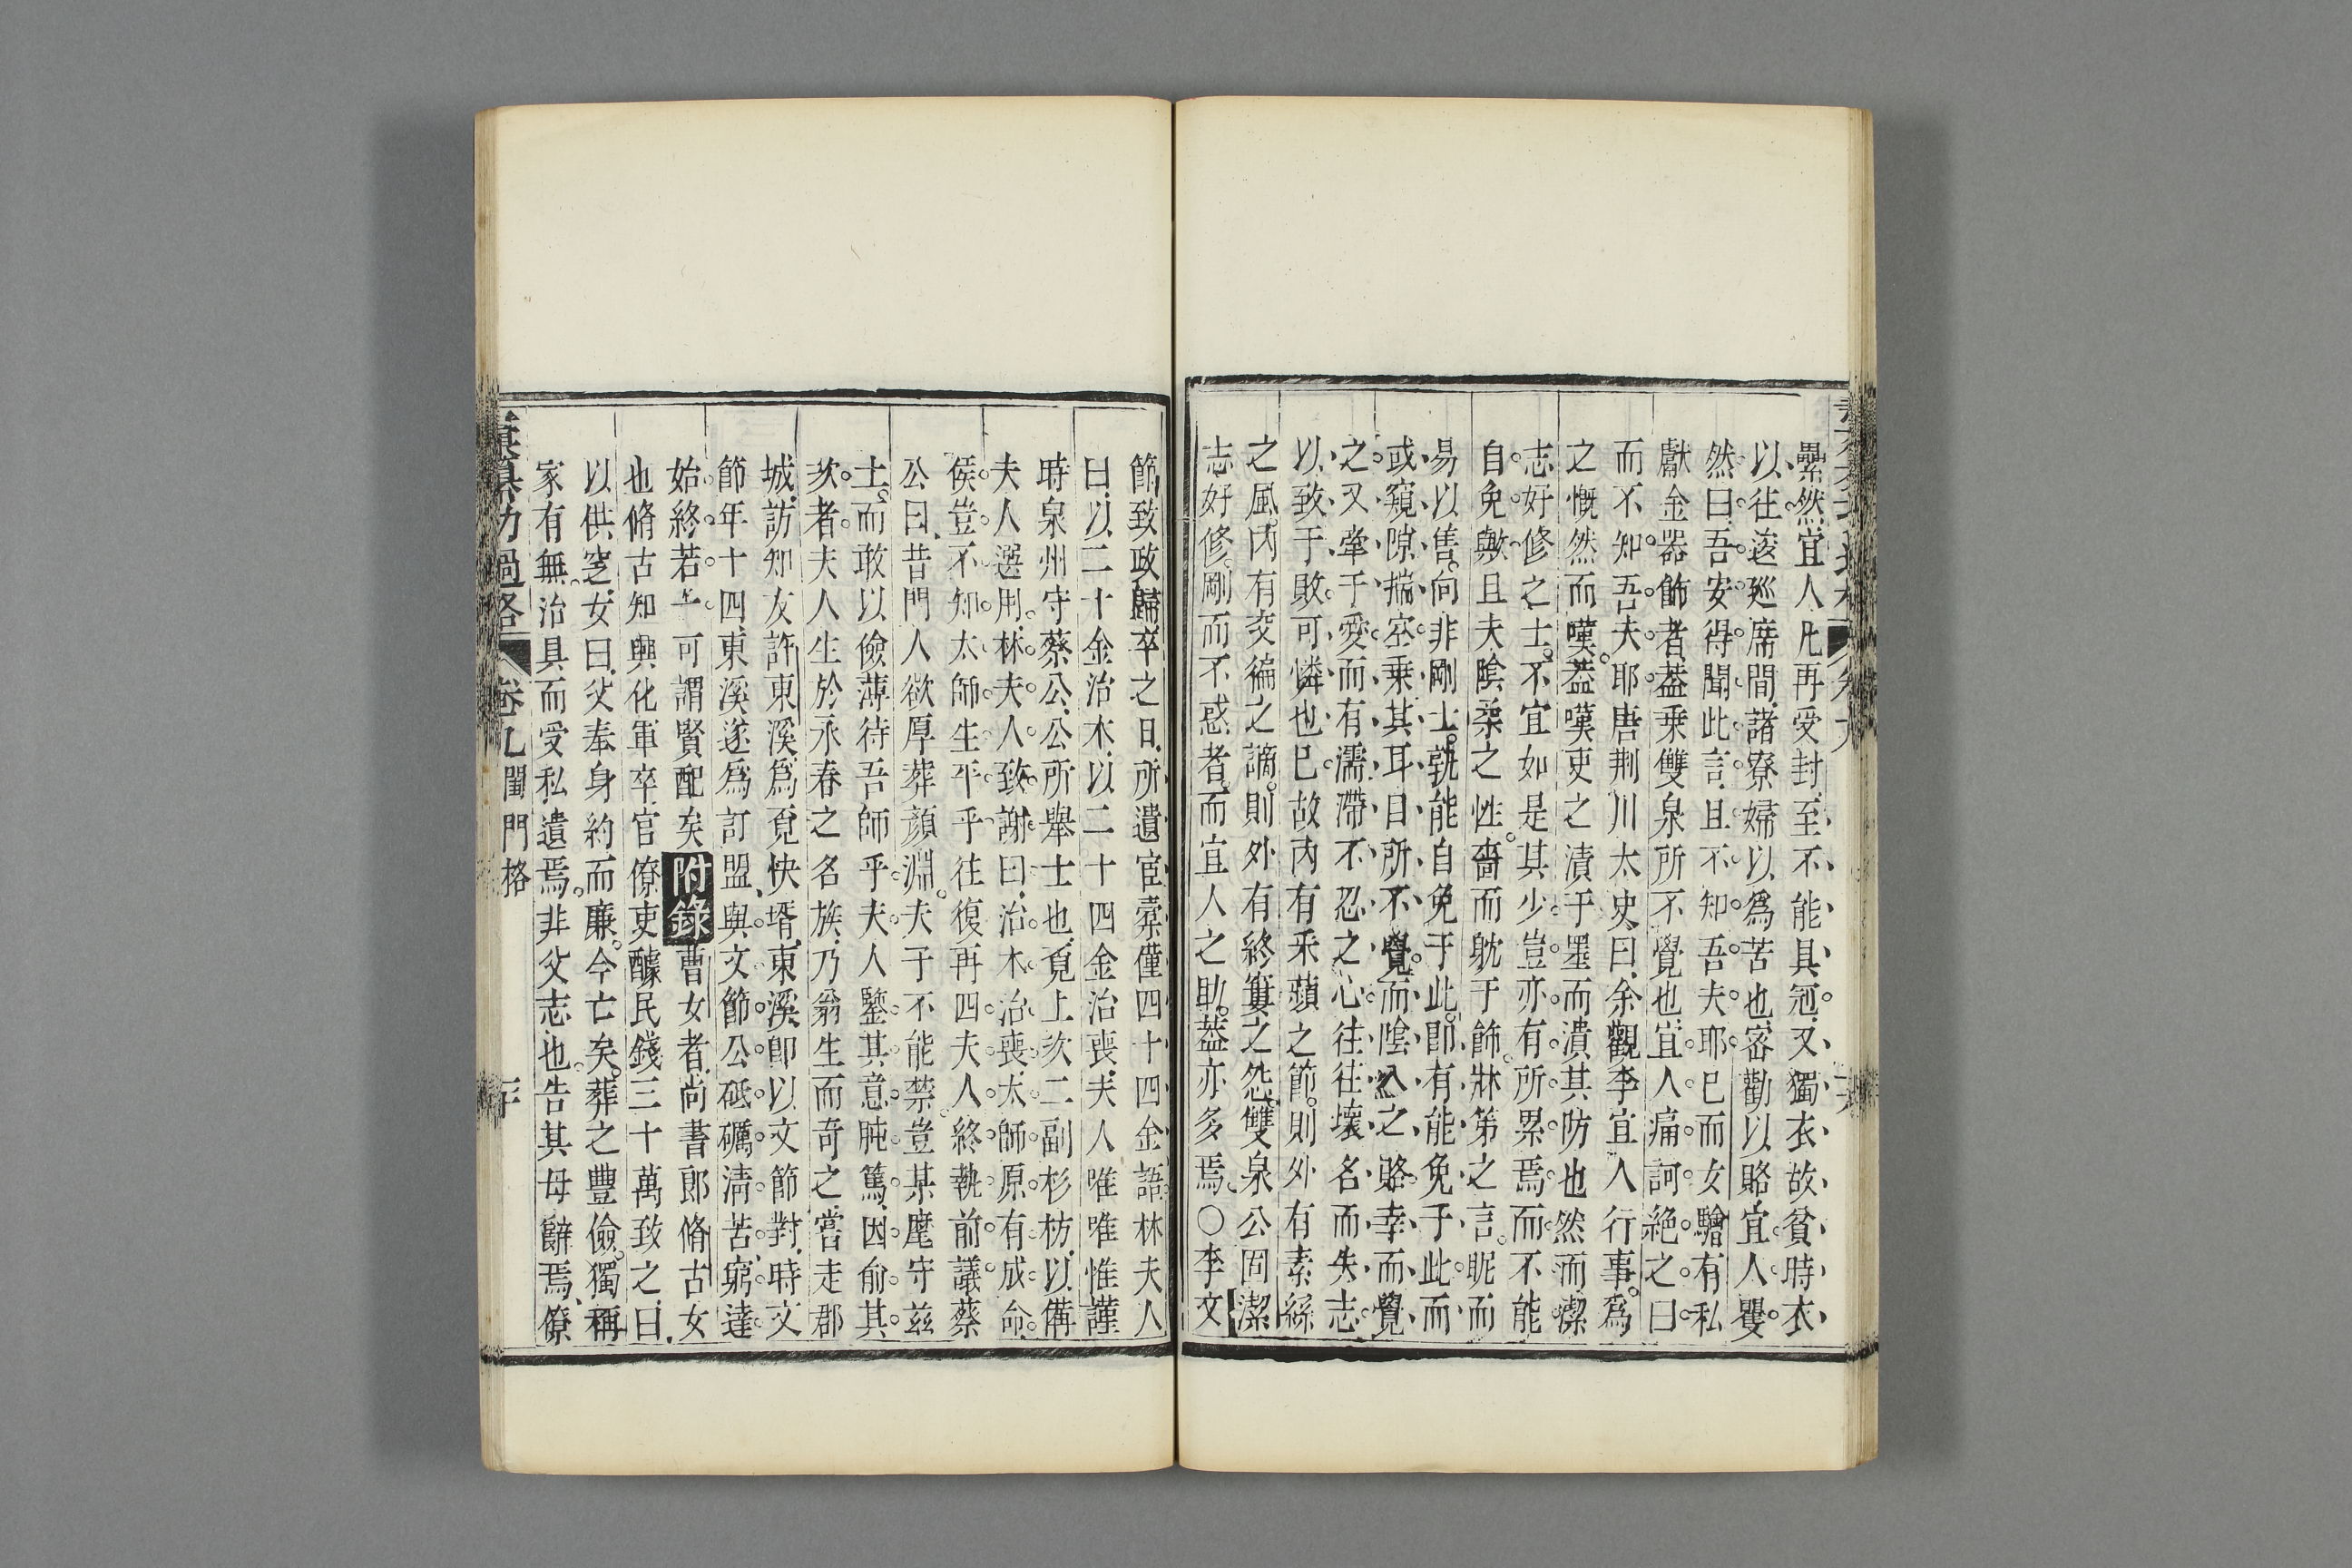 纍然宜人凡再受封至不能具冠又獨衣故貧時衣
以往逡廵席間諸寮婦以爲苦也密勸以賂宜人矍
然曰吾安得聞此言且不知吾夫耶已而女驓有私
獻金器飾者葢乗雙泉所不覺也宜人痛訶絶之曰
而不知吾夫耶唐荆川太史曰余觀李宜人行事爲
之慨然而嘆葢嘆吏之漬于墨而潰其防也然而潔
志好修之士不宜如是其少豈亦有所累焉而不能
自免歟且夫陰柔之性嗇而躭于飾牀笫之言昵而
易以售向非剛士孰能自免于此卽有能免于此而
或窺隙揣空乗其耳目所不覺而陰入之賂幸而覺
之又牽于愛而有濡滯不忍之心往往壞名而失志
以致于敗可憐也已故内有采蘋之節則外有素絲
之風内有交徧之謫則外有終窶之怨雙泉公固潔
志好修剛而不惑者而宜人之助葢亦多焉○李文
節致政歸卒之日所遺宦橐僅四十四金語林夫人
曰以二十金治木以二十四金治喪夫人唯唯惟謹
時泉州守蔡公公所舉士也覔上次二副杉枋以備
夫人選用林夫人致謝曰治木治喪太師原有成命
侯豈不知太師生平乎往復再四夫人終執前議蔡
公曰昔門人欲厚葬顔淵夫子不能禁豈某麾守兹
土而敢以儉薄待吾師乎夫人鑒其意肫篤因俞其
次者夫人生於永春之名族乃翁生而奇之嘗走郡
城訪知友許東溪爲覔快壻東溪卽以文節對時文
節年十四東溪遂爲訂盟與文節公砥礪清苦窮達
始終若一可謂賢配矣附錄曹女者尚書郎脩古女
也脩古知興化軍卒官僚吏醵民錢三十萬致之曰
以供窆女曰父奉身約而廉今亡矣葬之豐儉獨稱
家有無治具而受私遺焉非父志也告其母辭焉僚
彚纂功過格 卷九 閨門格